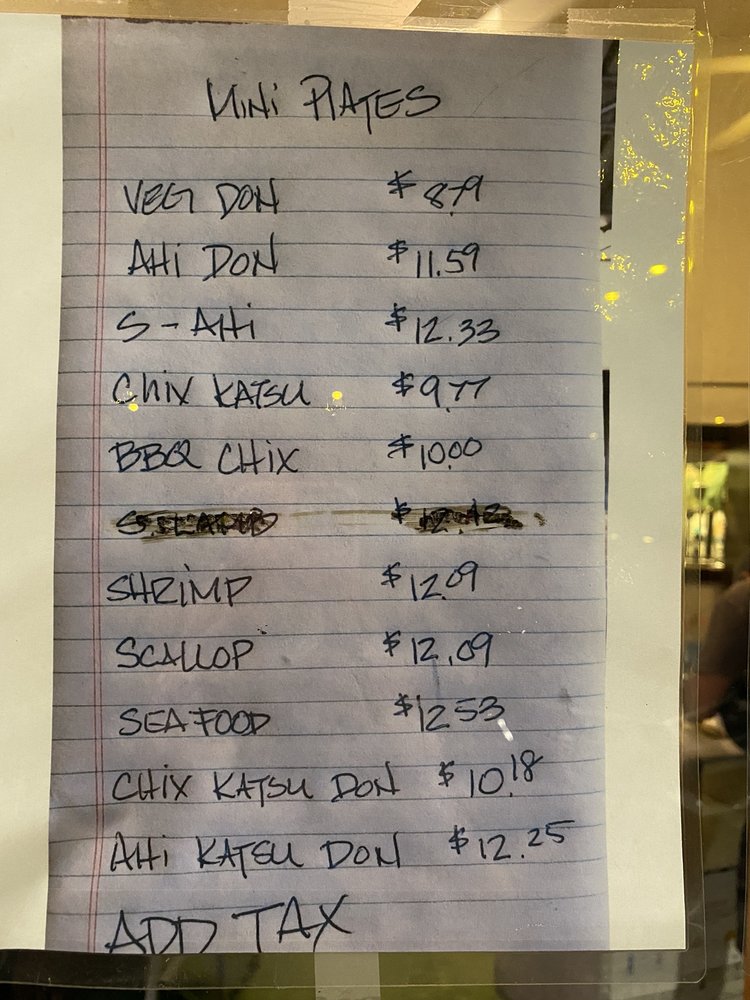 MiNi PLATES
VEG DON $8.79
AHi DON $11.59
S-AHi $12.33
CHiX KATSU $9.77
BBQ CHiX $10.00
SHRiMP $12.09
SCALLOP $12.09
SEAFOOD $12.53
CHiX KATSU DON $10.18
AHi KATSU DON $12.25
ADD TAX